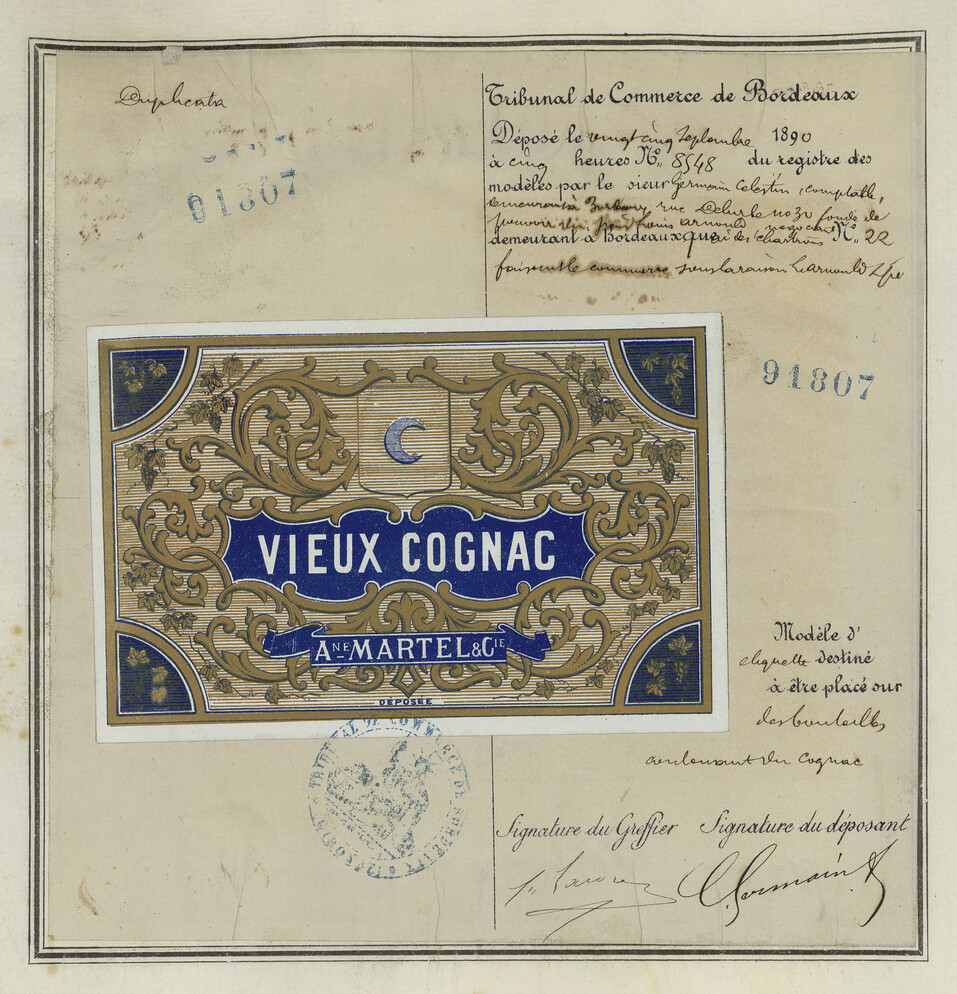 Duplicata
91807
Tribunal de Commerce de Bordeaux
Déposé le vingt cinq Septembre 1890
à cinq heures N° 8548 du registre des
modèles par le sieur Germain Célestin, comptable,
demeurant à rue no 30 fondé de
pouvoir arnould negociant
demeurant à Bordeaux quai des Chartrons N° 22
faisant le commerce sous la raison
91807
VIEUX COGNAC
ANE MARTEL & CIE
DÉPOSÉE
TRIBUNAL DE COMMERCE DE BORDEAUX
Modèle d'
etiquette destiné
à être placé sur
des bouteilles
contenant du Cognac
Signature du Greffier Signature du déposant
C. Germain